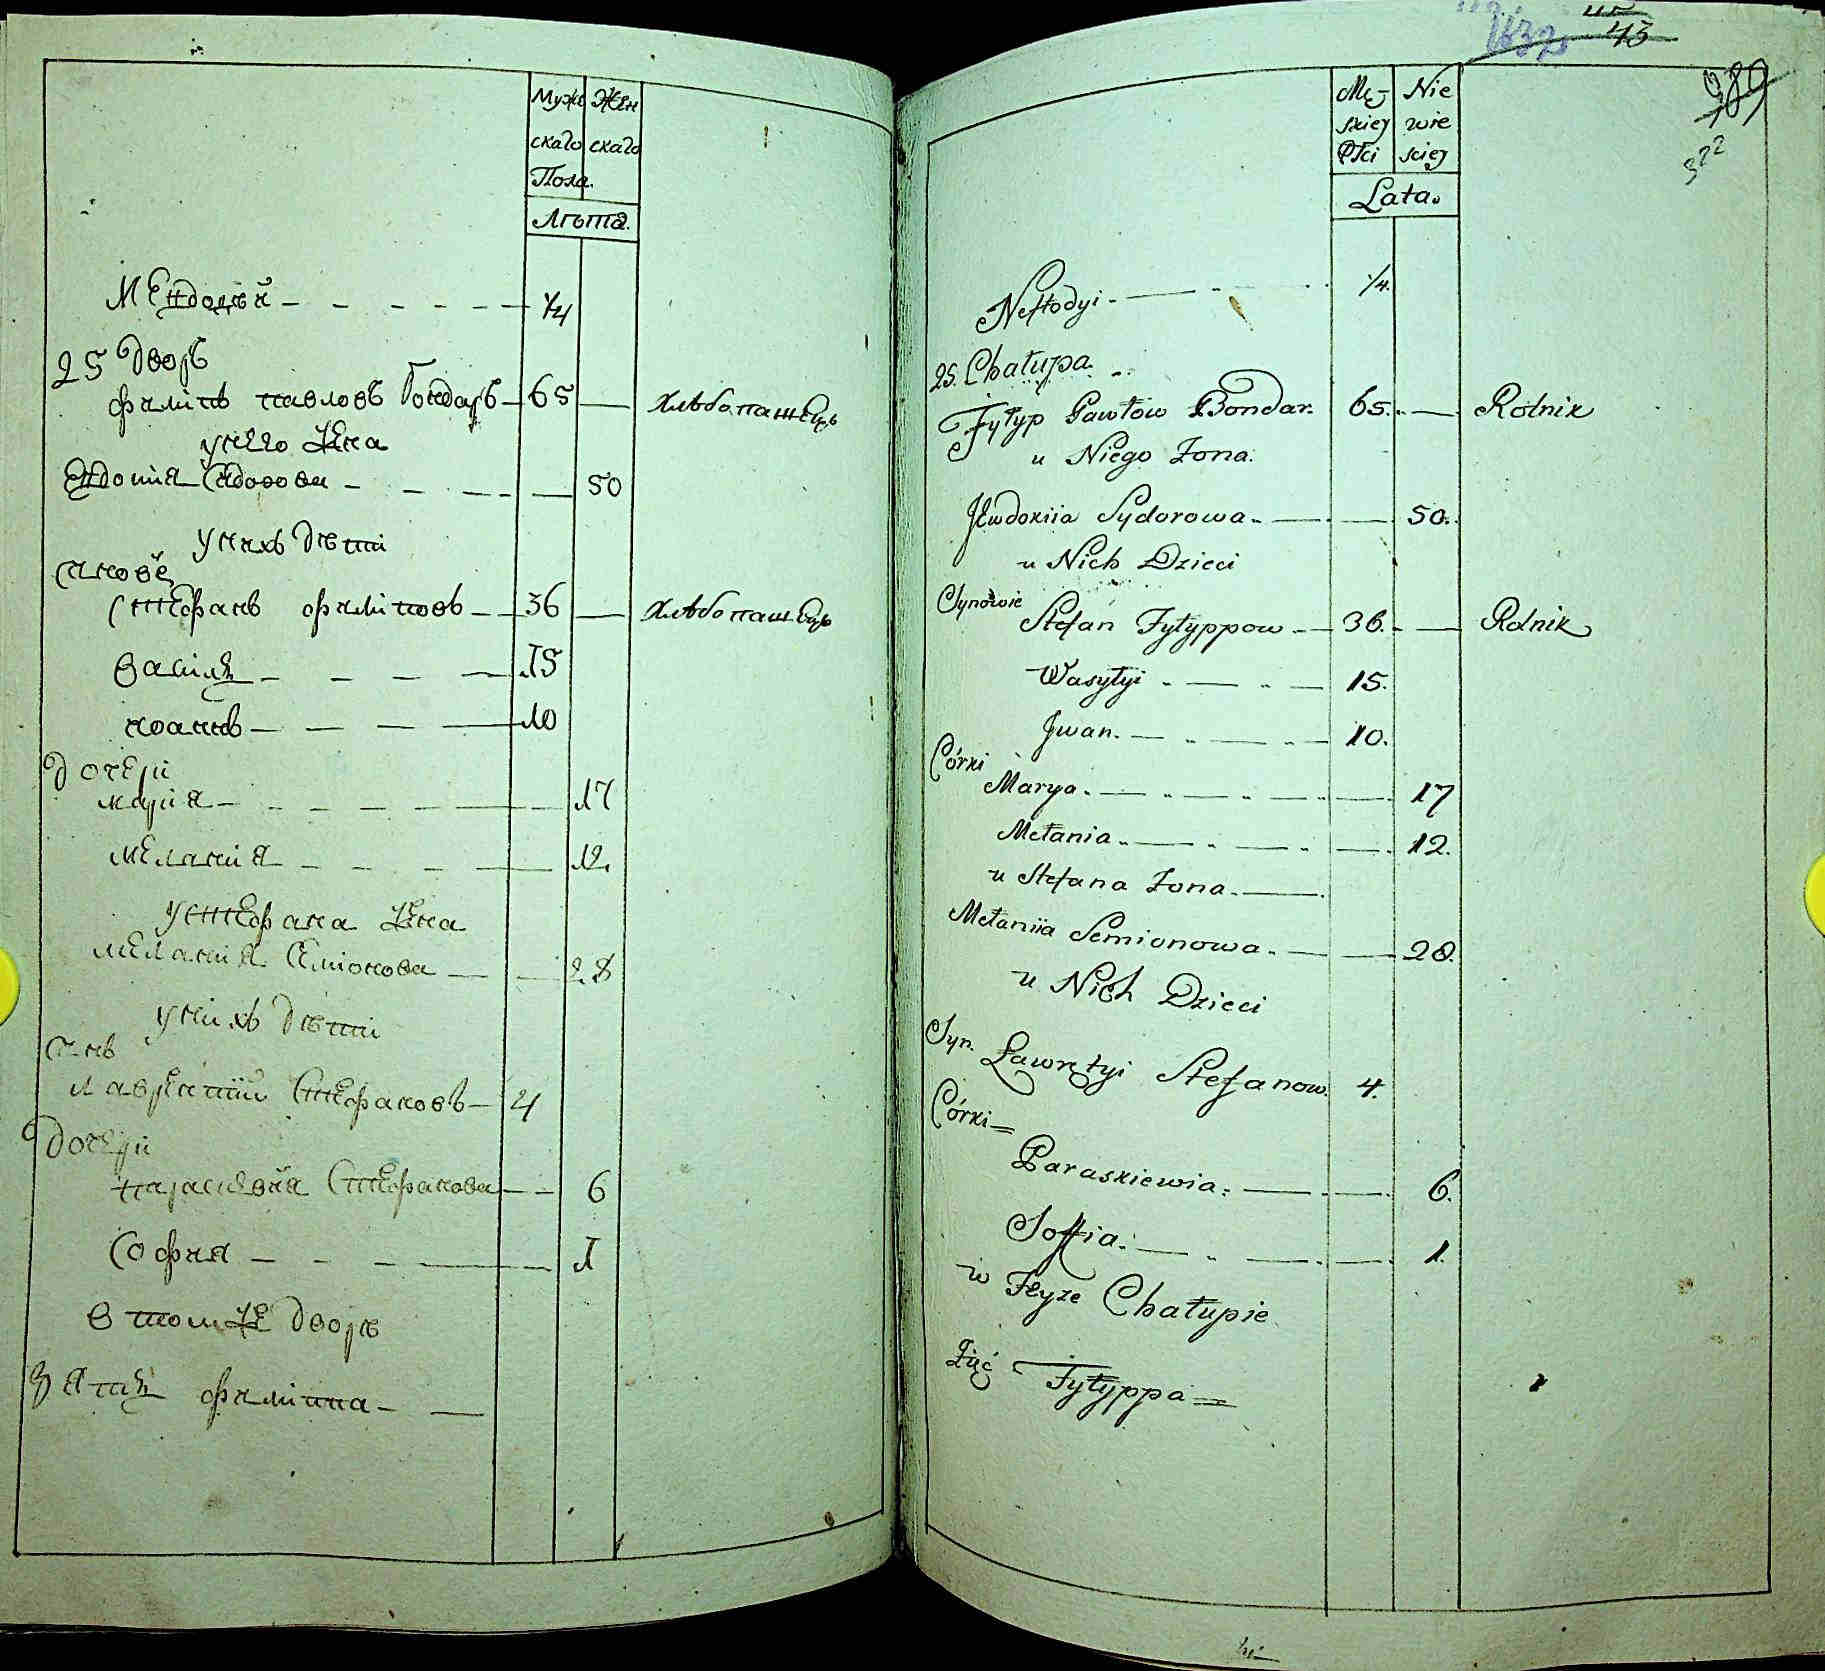 Мужескаго Женскаго
Пола.
Лѣта.
¼
25 дворъ
филипъ павловъ бондаръ 65 — хлѣбопашецъ
у него жена
Евдокия Сидорова 50
у нихъ дѣти
синове
Стефанъ филиповъ 36 — хлѣбопашецъ
василь 15
иоаннъ 10
дочери
мария 17
мелания 12.
у стефана жена
мелания Семионова 28
у нихъ дѣти
синъ
лаврентий Стефановъ 4
дочери
параскевия Стефанова 6
София 1
в томже дворѣ
зять филипа
43
389
322
Męskiej Niewieściej
Płci
Lata.
Neftodyi ¼.
25. Chałupa.
Fyłyp Pawłow Bondar. 65. — Rolnik
u Niego Żona.
Jewdokiia Sydorowa. 50.
u Nich Dzieci
Synowie
Stefan Fyłyppow 36. — Rolnik
Wasyłyi 15.
Jwan. 10.
Córki
Marya. 17
Mełania 12.
u Stefana Żona.
Mełaniia Semionowa. 28.
u Nich Dzieci
Syn.
Ławrętyi Stefanow. 4.
Córki
Paraskiewia. 6.
Soffia. 1.
w Teyże Chałupie
Zięć Fyłyppa